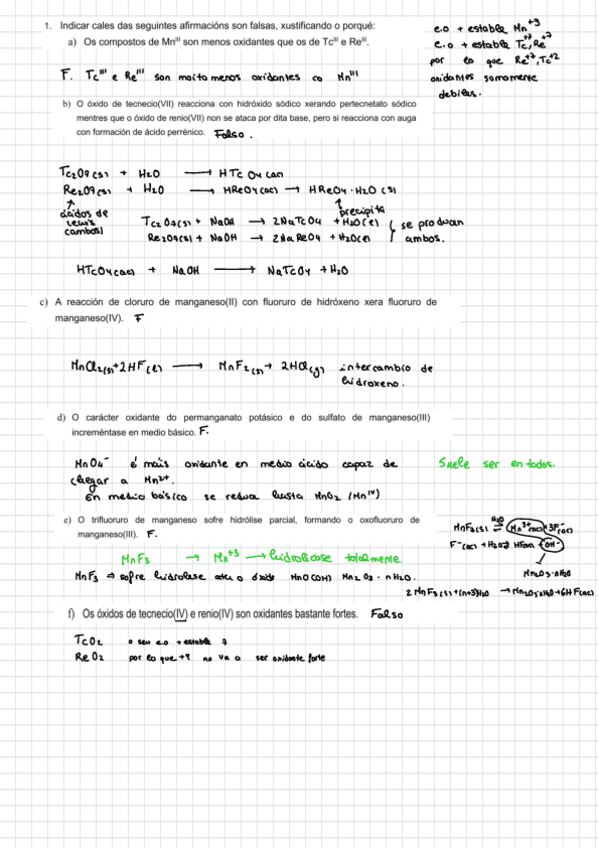 1. Indicar cales das seguintes afirmacións son falsas, xustificando o porqué:
a) Os compostos de Mnᴵᴵᴵ son menos oxidantes que os de Tcᴵᴵᴵ e Reᴵᴵᴵ.
F. Tcᴵᴵᴵ e Reᴵᴵᴵ son moito menos oxidantes co Mnᴵᴵᴵ
e.o + estable Mn⁺³
e.o + estable Tc, Re⁺⁷
por lo que Re⁺⁷, Tc⁺²
oxidantes somomente
debiles.
b) O óxido de tecnecio(VII) reacciona con hidróxido sódico xerando pertecnetato sódico
mentres que o óxido de renio(VII) non se ataca por dita base, pero si reacciona con auga
con formación de ácido perrénico. Falso.
Tc₂O₇(s) + H₂O → HTcO₄(ac)
Re₂O₇(s) + H₂O → HReO₄(ac) → HReO₄·H₂O (s)
ácidos de
Lewis
(ambos)
precipita
Tc₂O₇(s) + NaOH → 2NaTcO₄ + H₂O(l)
Re₂O₇(s) + NaOH → 2NaReO₄ + H₂O(l)
se producen
ambos.
HTcO₄(ac) + NaOH → NaTcO₄ + H₂O
c) A reacción de cloruro de manganeso(II) con fluoruro de hidróxeno xera fluoruro de
manganeso(IV). F
MnCl₂(s) + 2HF(l) → MnF₂(s) + 2HCl(g) intercambio de
hidroxeno.
d) O carácter oxidante do permanganato potásico e do sulfato de manganeso(III)
increméntase en medio básico. F.
MnO₄⁻ é mais oxidante en medio ácido capaz de
chegar a Mn²⁺.
En medio básico se reduce hasta MnO₂ (Mnᴵⱽ)
Suele ser en todos.
e) O trifluoruro de manganeso sofre hidrólise parcial, formando o oxofluoruro de
manganeso(III). F.
MnF₃ → Mn⁺³ → hidrolícase totalmente.
MnF₃ ⇒ sofre hidrolase ata o óxido MnO(OH) Mn₂O₃·nH₂O.
MnF₃(s) ⇌ H₂O Mn³⁺(ac) + 3F⁻(ac)
F⁻(ac) + H₂O ⇌ HF(ac) + OH⁻
Mn₂O₃·nH₂O
2MnF₃(s) + (n+3)H₂O → Mn₂O₃·nH₂O + 6HF(ac)
f) Os óxidos de tecnecio(IV) e renio(IV) son oxidantes bastante fortes. Falso
TcO₂ o seu e.o + estable
ReO₂ por lo que +4 no va a ser oxidante forte